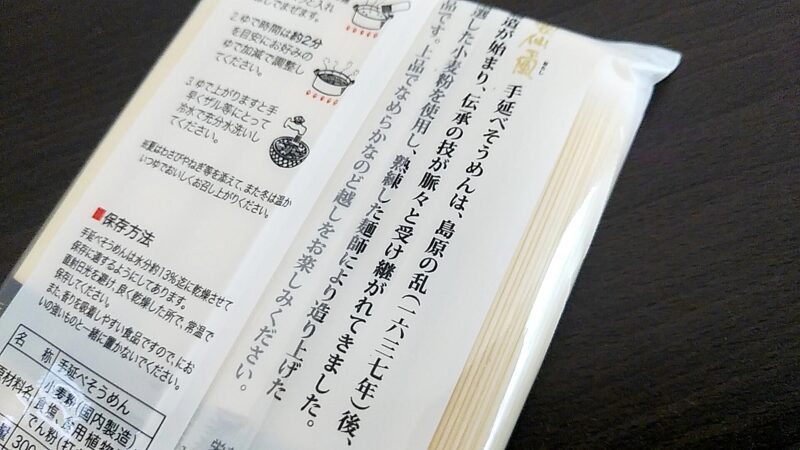 手延べそうめんは、島原の乱(一六三七年)後、
道が始まり、伝承の技が脈々と受け継がれてきました。
選した小麦粉を使用し、熟練した麺師により造り上げた
品です。上品でなめらかなのど越しをお楽しみください。
してまぜます。
2.ゆで時間は約2分
を目安にお好みの
ゆで加減で調整し
てください。
3.ゆで上がりますと手
早くザル等にとって
冷水で充分水洗いし
てください。
夏はわさびやねぎ等を添えて、また冬は温か
いつゆでおいしくお召し上がりください。
保存方法
手延べそうめんは水分約13%迄に乾燥させて
保存に適するようにしてあります。
直射日光を避け、良く乾燥した所で、常温で
保存してください。
また、香りを吸着しやすい食品ですので、にお
いの強いものと一緒に置かないでください。
名 称 手延べそうめん
原材料名 小麦粉(国内製造)
食塩、食用植物
でん粉(打
300